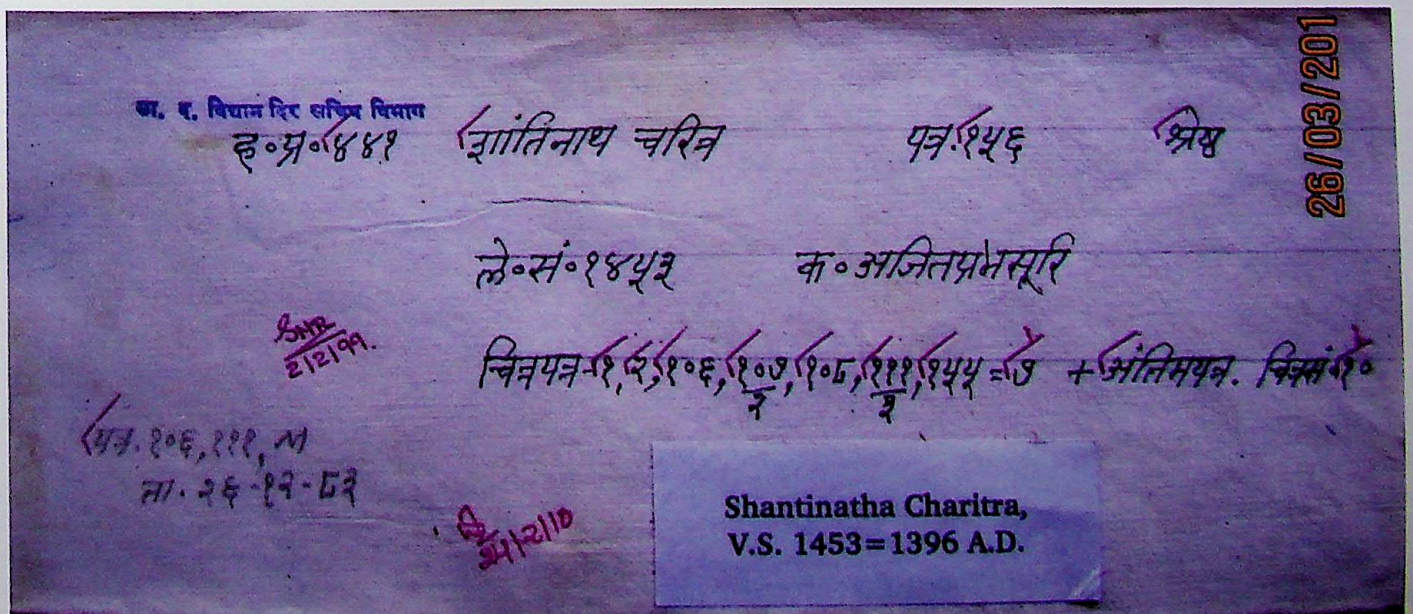 ला. द. विद्यामंदिर सचित्र विभाग
ह॰प्र॰४४१ शांतिनाथ चरित्र पत्र.१५६ श्रेष्ठ
ले॰सं॰१४५३ क॰अजितप्रभसूरि
चित्रपत्र-१,२,१०६,१०७/२,१०८,१११/२,१५५=७ +अंतिमपत्र. चित्रसं.१०
2/2/99.
पत्र.१०६,१११, M
ता. २६-१२-८३
24/2/10
Shantinatha Charitra,
V.S. 1453=1396 A.D.
26/03/201